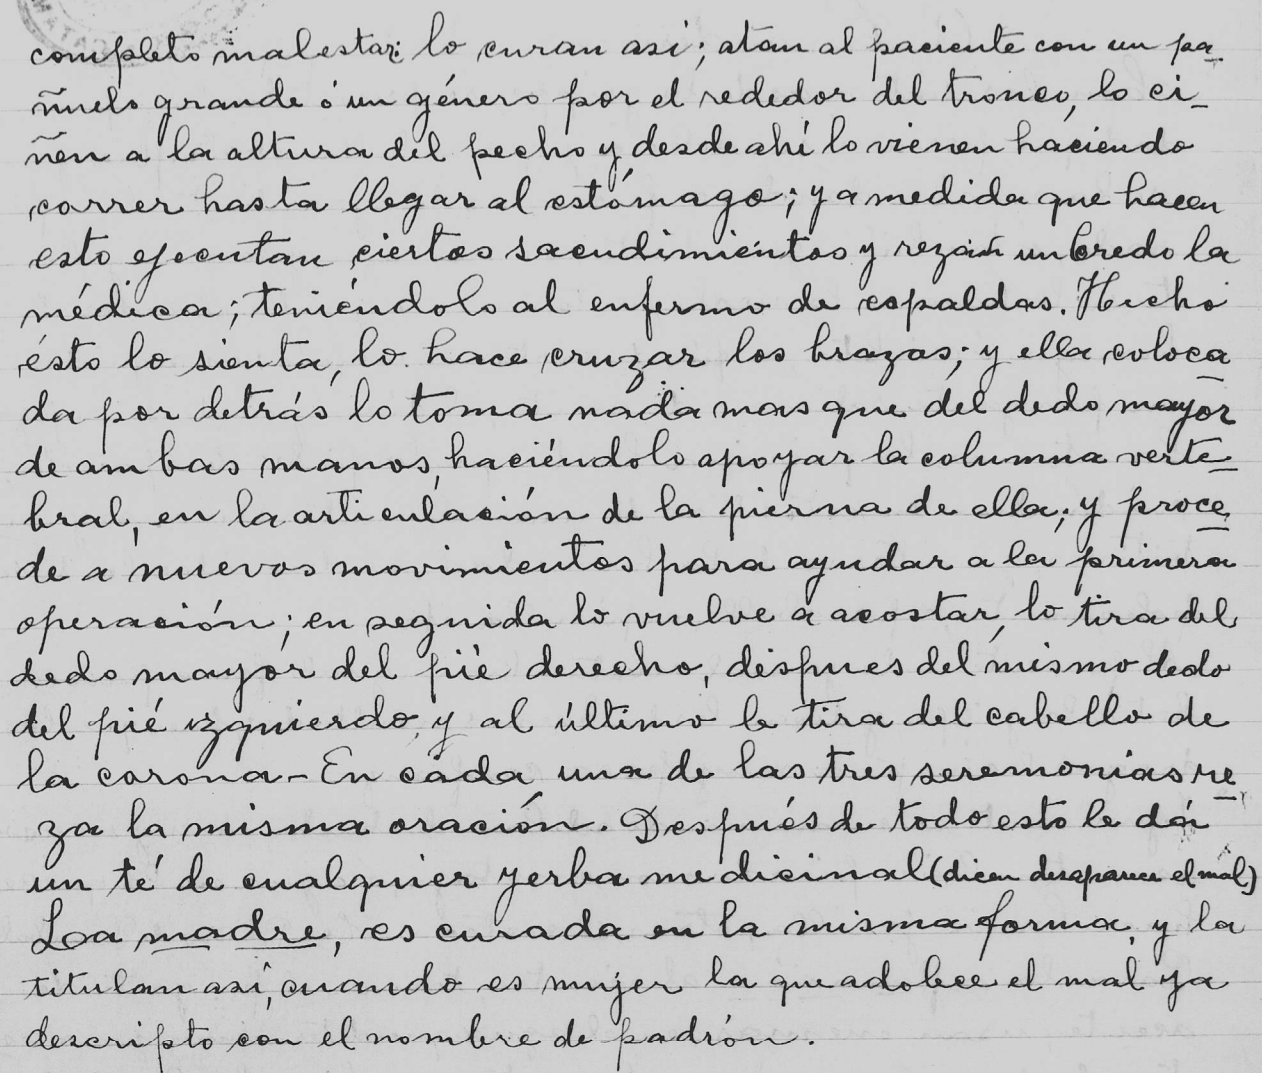 completo malestar; lo curan asi; atan al paciente con un pa
ñuelo grande ó un género por el rededor del tronco, lo ci-
ñen a la altura del pecho y desde ahí lo vienen haciendo
correr hasta llegar al estómago; y a medida que hacen
esto ejecutan ciertos sacudimientos y rezan un credo la
médica; teniéndolo al enfermo de espaldas. Hecho
ésto lo sienta, lo hace cruzar los brazos; y ella coloca
da por detrás lo toma nada mas que del dedo mayor
de ambas manos, haciéndolo apoyar la columna verte-
bral, en la articulación de la pierna de ella; y proce
de a nuevos movimientos para ayudar a la primera
operación; en seguida lo vuelve a acostar, lo tira del
dedo mayor del pié derecho, despues del mismo dedo
del pié izquierdo, y al último le tira del cabello de
la corona - En cada una de las tres seremonias re
za la misma oración. Después de todo esto le dái
un té de cualquier yerba medicinal (dicen desaparece el mal)
La madre, es curada en la misma forma, y la
titulan así, cuando es mujer la que adolece el mal ya
descripto con el nombre de padrón.